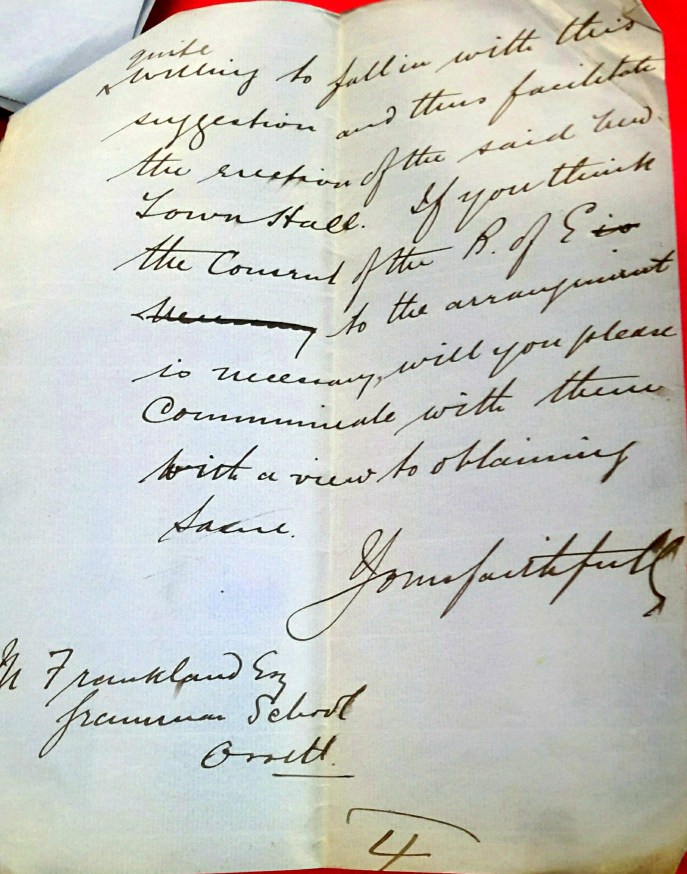 quite
willing to fall in with this
suggestion and thus facilitate
the erection of the said new
Town Hall. If you think
the Consent of the B. of E is
necessary to the arrangement
is necessary, will you please
Communicate with them
with a view to obtaining
same.
Yours faithfully
Frankland Esq
Grammar School
Ossett.
4